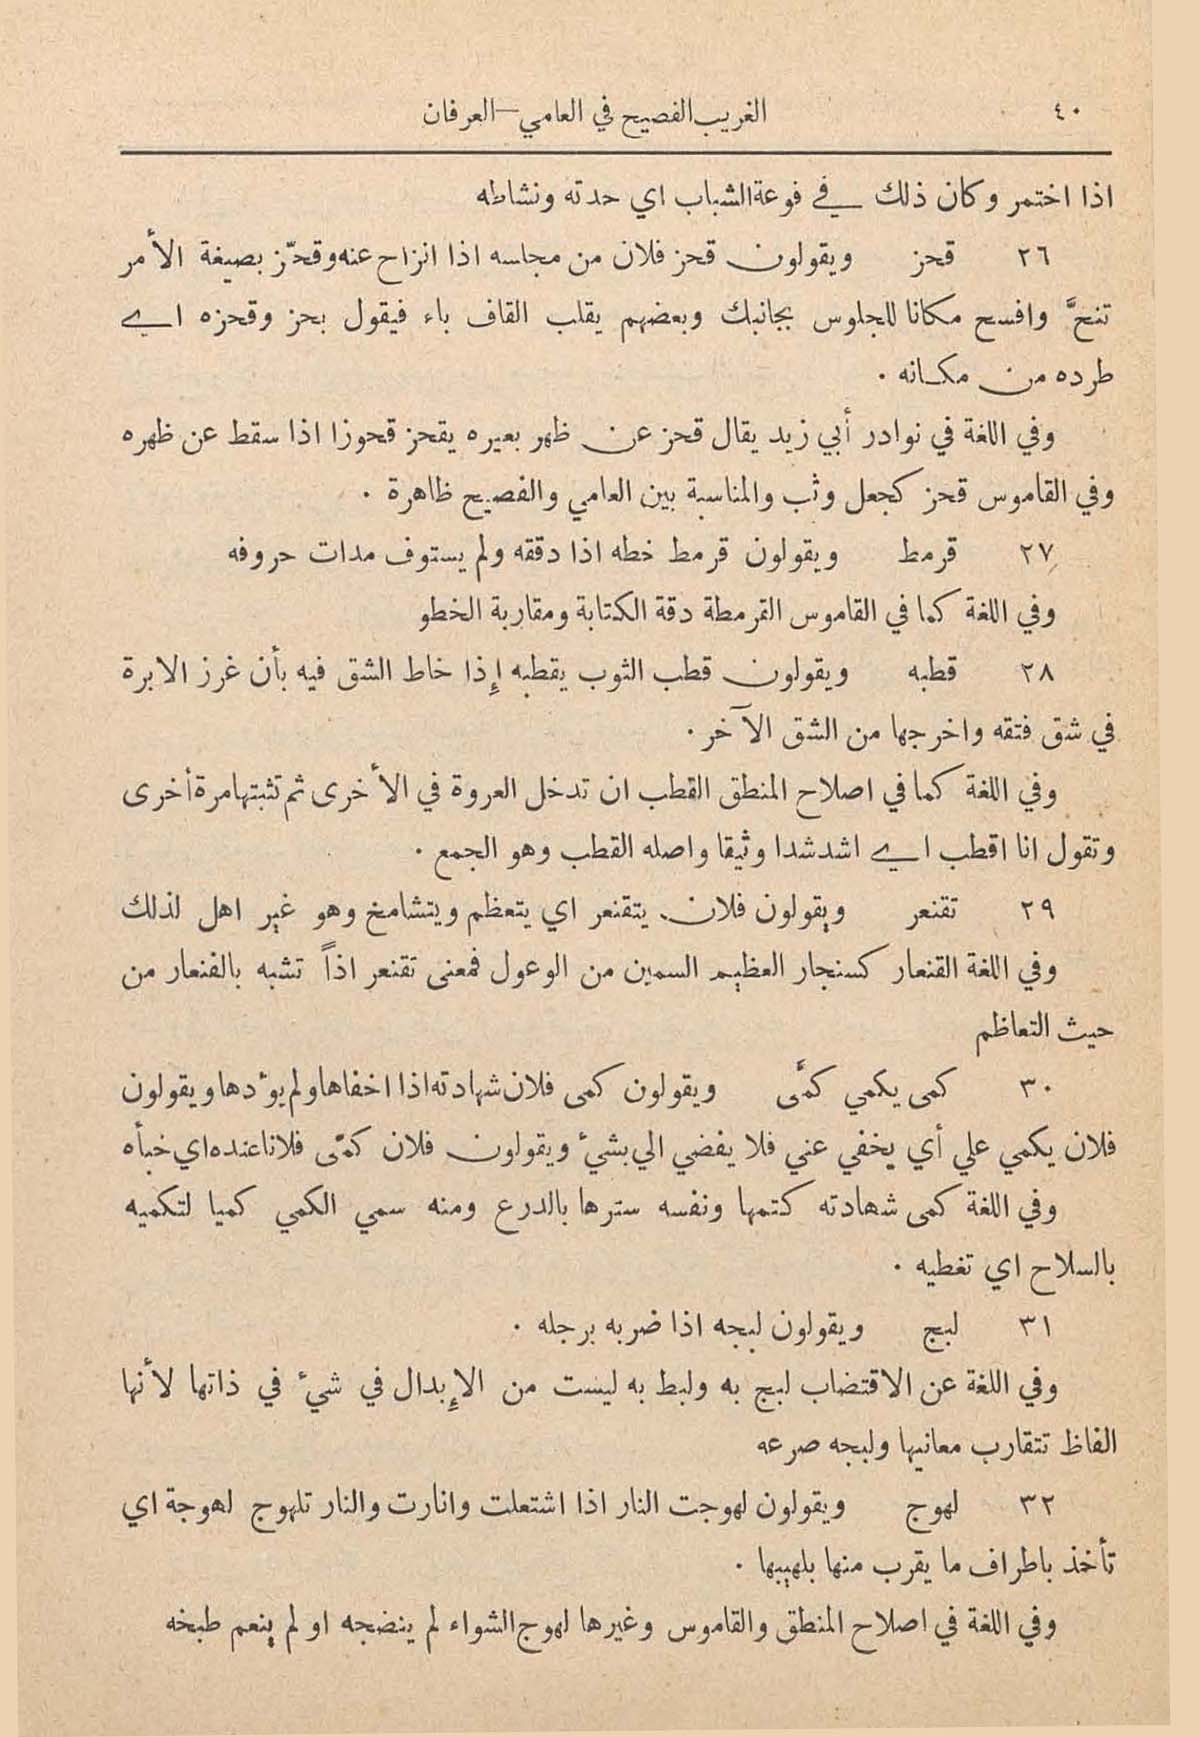 ٤٠ الغريب الفصيح في العامي—العرفان
اذا اختمر وكان ذلك في فوعة الشباب اي حدته ونشاطه
٢٦ قحز ويقولون قحز فلان من مجلسه اذا انزاح عنه وقحّز بصيغة الأمر
تنحَّ وافسح مكانا للجلوس بجانبك وبعضهم يقلب القاف باء فيقول بحز وقحزه اي
طرده من مكانه .
وفي اللغة في نوادر أبي زيد يقال قحز عن ظهر بعيره يقحز قحوزا اذا سقط عن ظهره
وفي القاموس قحز كجعل وثب والمناسبة بين العامي والفصيح ظاهرة .
٢٧ قرمط ويقولون قرمط خطه اذا دققه ولم يستوف مدات حروفه
وفي اللغة كما في القاموس القرمطة دقة الكتابة ومقاربة الخطو
٢٨ قطبه ويقولون قطب الثوب يقطبه إذا خاط الشق فيه بأن غرز الابرة
في شق فتقه واخرجها من الشق الآخر .
وفي اللغة كما في اصلاح المنطق القطب ان تدخل العروة في الأخرى ثم تثبتها مرة أخرى
وتقول انا اقطب اي اشد شدا وثيقا واصله القطب وهو الجمع .
٢٩ تقنعر ويقولون فلان يتقنعر اي يتعظم ويتشامخ وهو غير اهل لذلك
وفي اللغة القنعار كسنجار العظيم السمين من الوعول فمعنى تقنعر اذاً تشبه بالقنعار من
حيث التعاظم
٣٠ كمى يكمي كمَّى ويقولون كمى فلان شهادته اذا اخفاها ولم يؤدها ويقولون
فلان يكمي علي أي يخفي عني فلا يفضي الي بشيء ويقولون فلان كمّى فلانا عنده اي خبأه
وفي اللغة كمى شهادته كتمها ونفسه سترها بالدرع ومنه سمي الكمي كميا لتكميه
بالسلاح اي تغطيه .
٣١ لبج ويقولون لبجه اذا ضربه برجله .
وفي اللغة عن الاقتضاب لبج به ولبط به ليست من الإبدال في شيء في ذاتها لأنها
الفاظ تتقارب معانيها ولبجه صرعه
٣٢ لهوج ويقولون لهوجت النار اذا اشتعلت وانارت والنار تلهوج لهوجة اي
تأخذ باطراف ما يقرب منها بلهيبها .
وفي اللغة في اصلاح المنطق والقاموس وغيرها لهوج الشواء لم ينضجه او لم ينعم طبخه